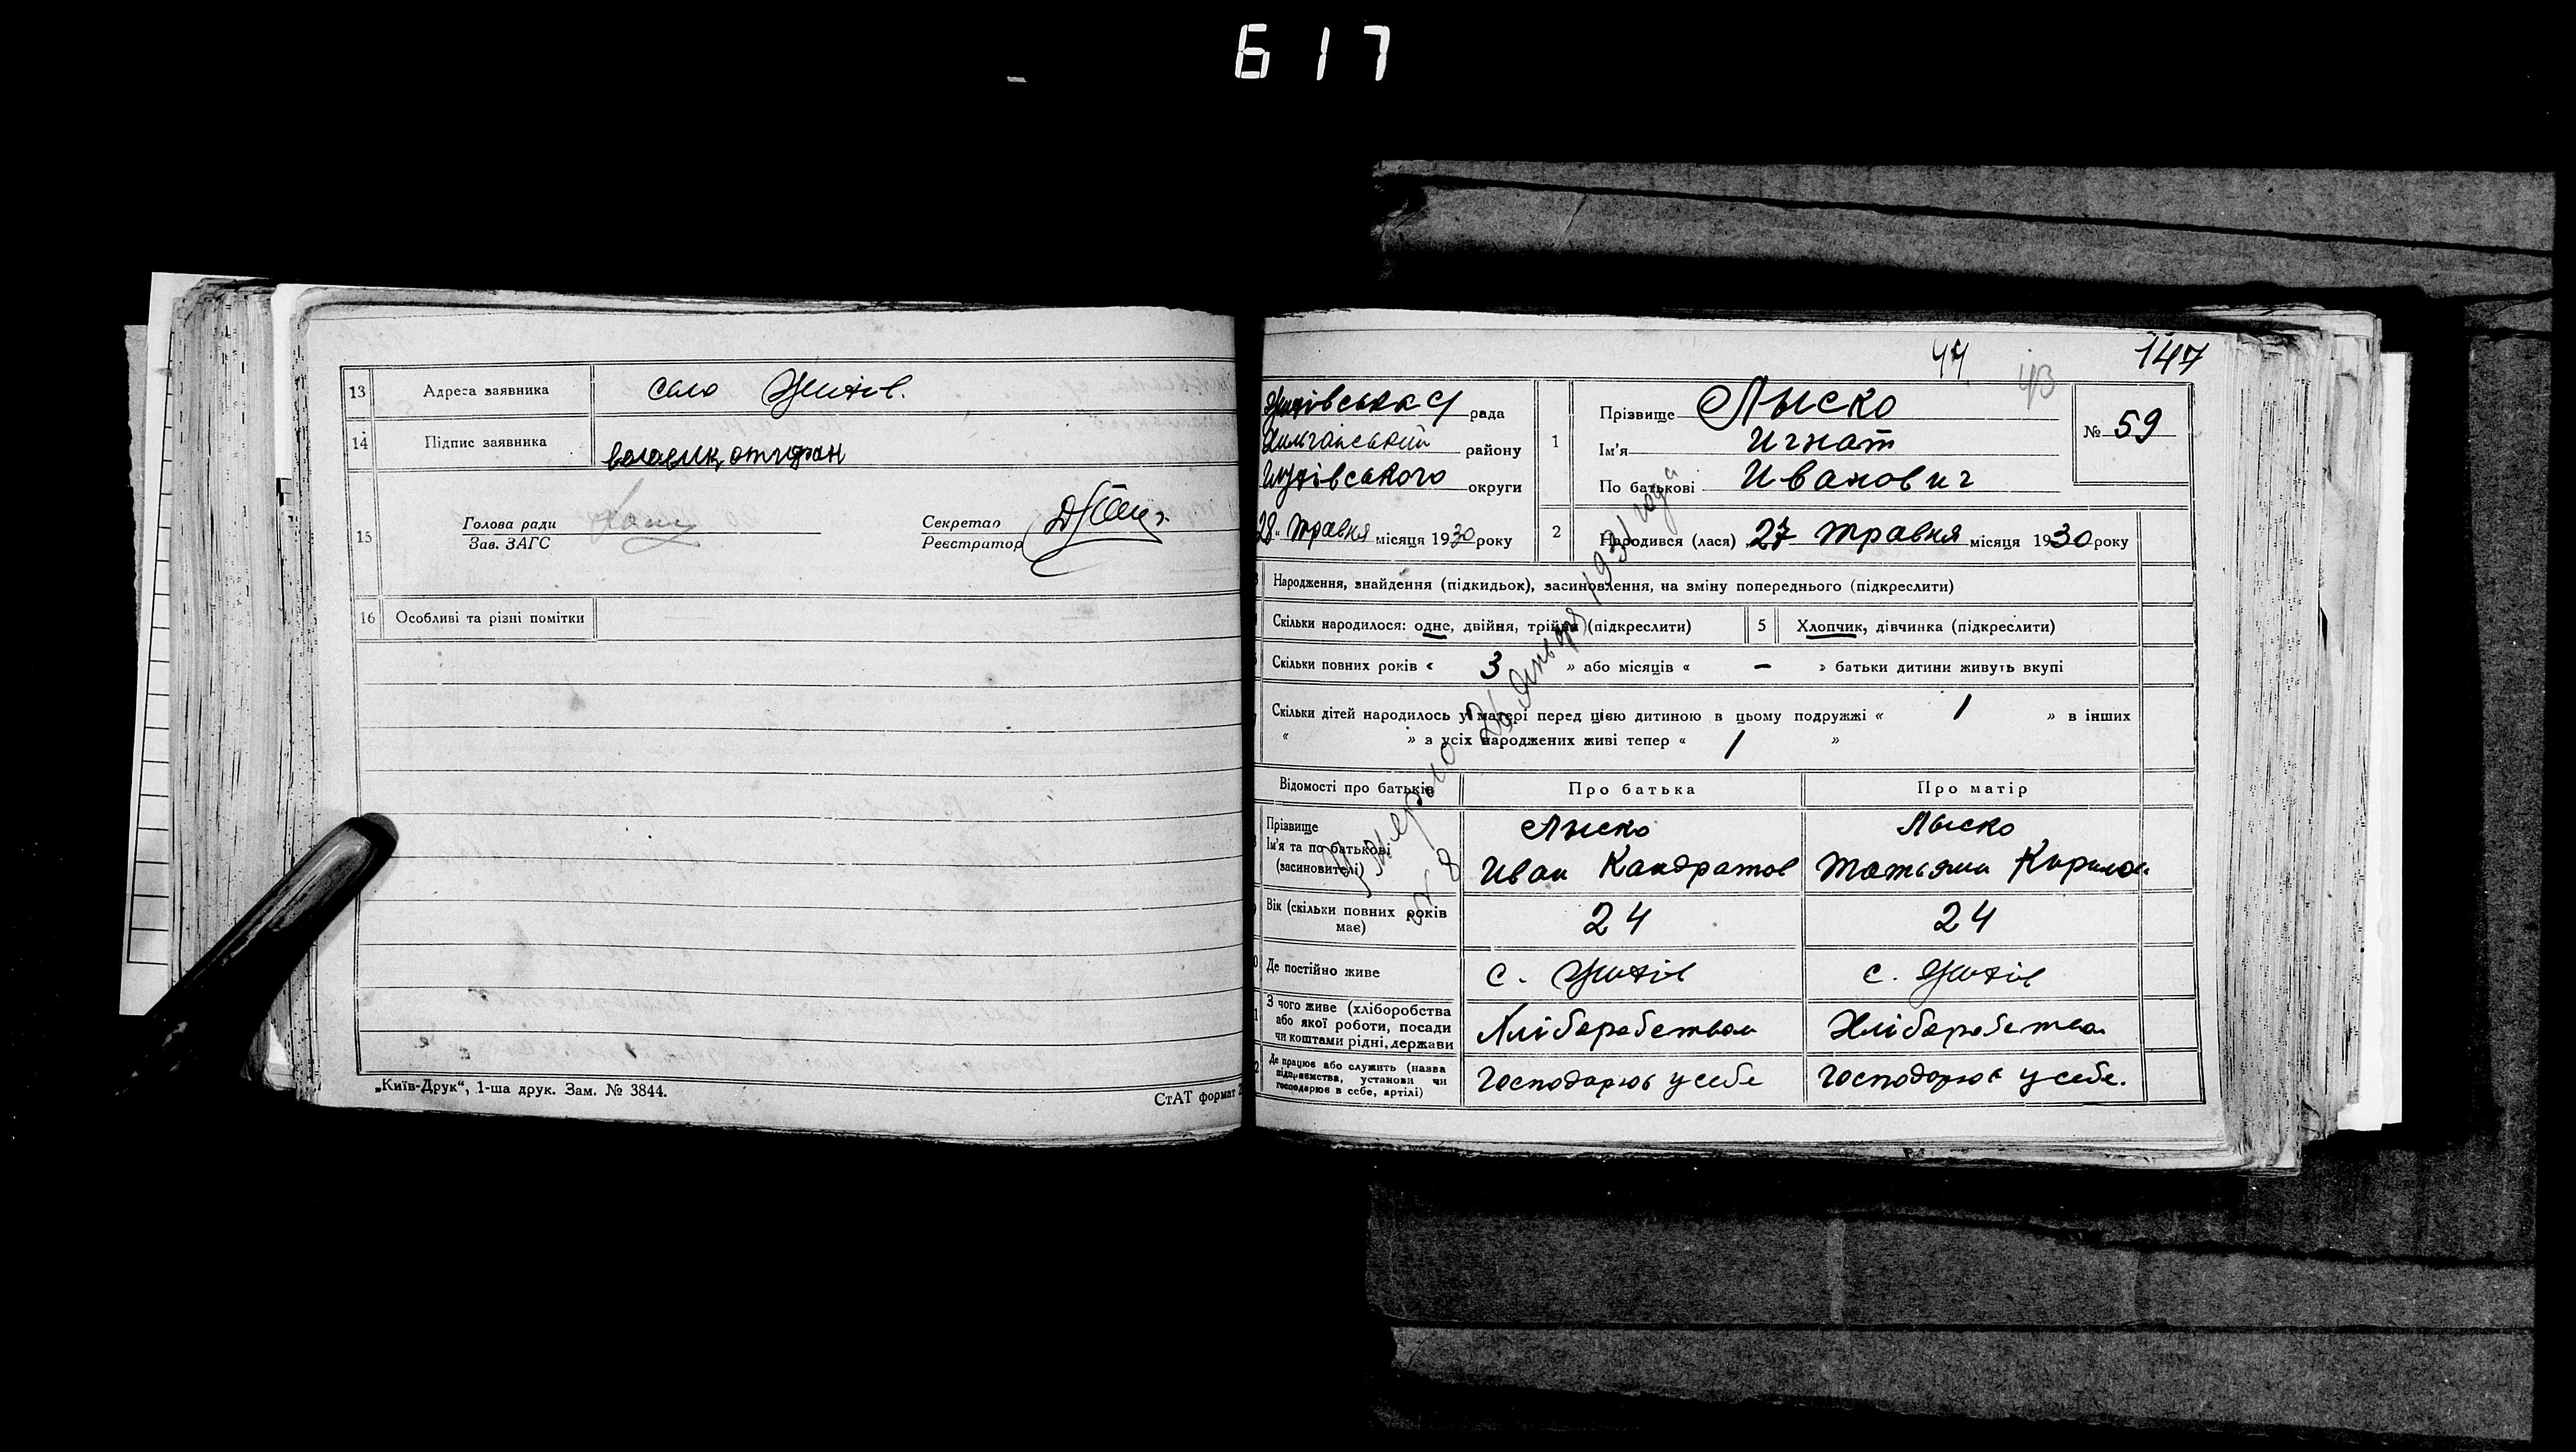 617
13 Адреса заявника село
14 Підпис заявника
15 Голова ради
Зав. ЗАГС
Секретар
Реєстратор
16 Особливі та різні помітки
„Київ-Друк“, 1-ша друк. Зам. № 3844.
СтАТ формат
44 43 147
рада
району
округи
28 " травня місяця 1930 року
1 Прізвище Лыско
Ім'я Игнат
По батькові Иванович
№ 59
2 Народився (лася) 27 травня місяця 1930 року
Народження, знайдення (підкидьок), засиновлення, на зміну попереднього (підкреслити)
Скільки народилося: одне, двійня, трійня (підкреслити) 5 Хлопчик, дівчинка (підкреслити)
Скільки повних років « 3 » або місяців « — » батьки дитини живуть вкупі
Скільки дітей народилось у матері перед цією дитиною в цьому подружжі « 1 » в інших
« » з усіх народжених живі тепер « 1 »
Умерло 26 Январ 1931 года
№ 8
Відомості про батьків Про батька Про матір
Прізвище Лыско Лыско
Ім'я та по батькові
(засиновителі) Иван Кандратов Татьяна Кирилов.
Вік (скільки повних років
має) 24 24
Де постійно живе с. с.
З чого живе (хліборобства
або якої роботи, посади
чи коштами рідні, держави
Де працює або служить (назва
підприємства, установи чи
господарює в себе, артілі) Господорює у себе Господорює у себе.